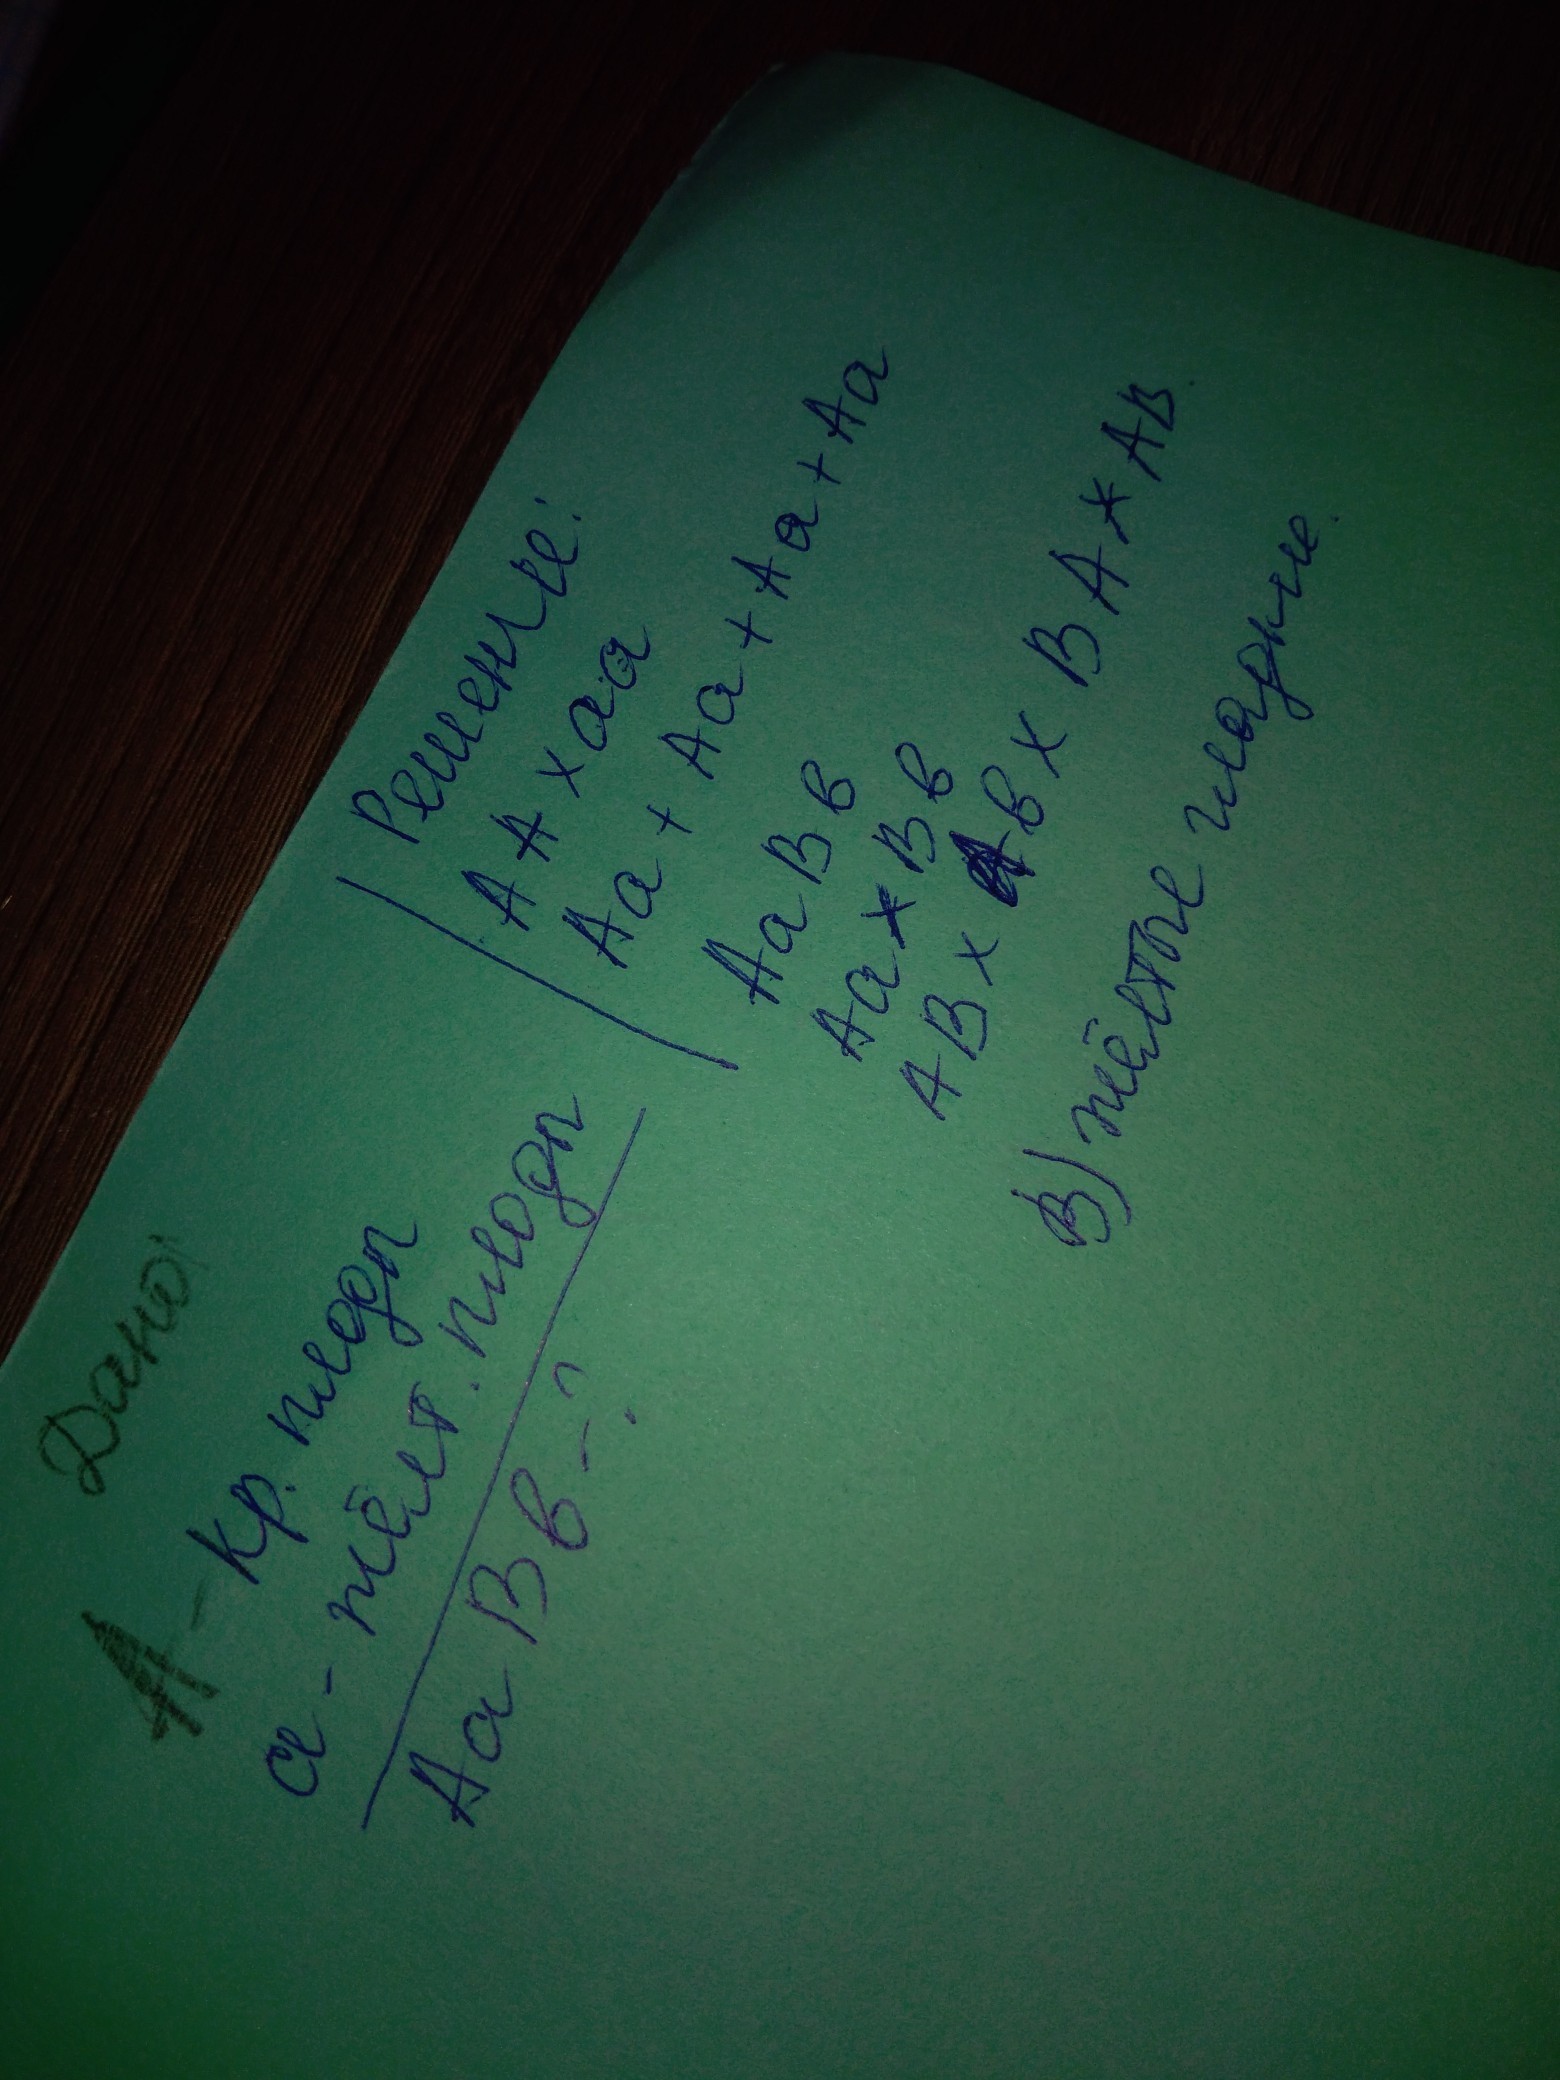 Дано:
А - кр. плоды
а - жёлт. плоды
АаВв - ?
Решение:
АА х аа
Аа + Аа + Аа + Аа
АаВв
Аа х Вв
АВ х Ав х ВА х АВ.
В) жёлтые гладкие.